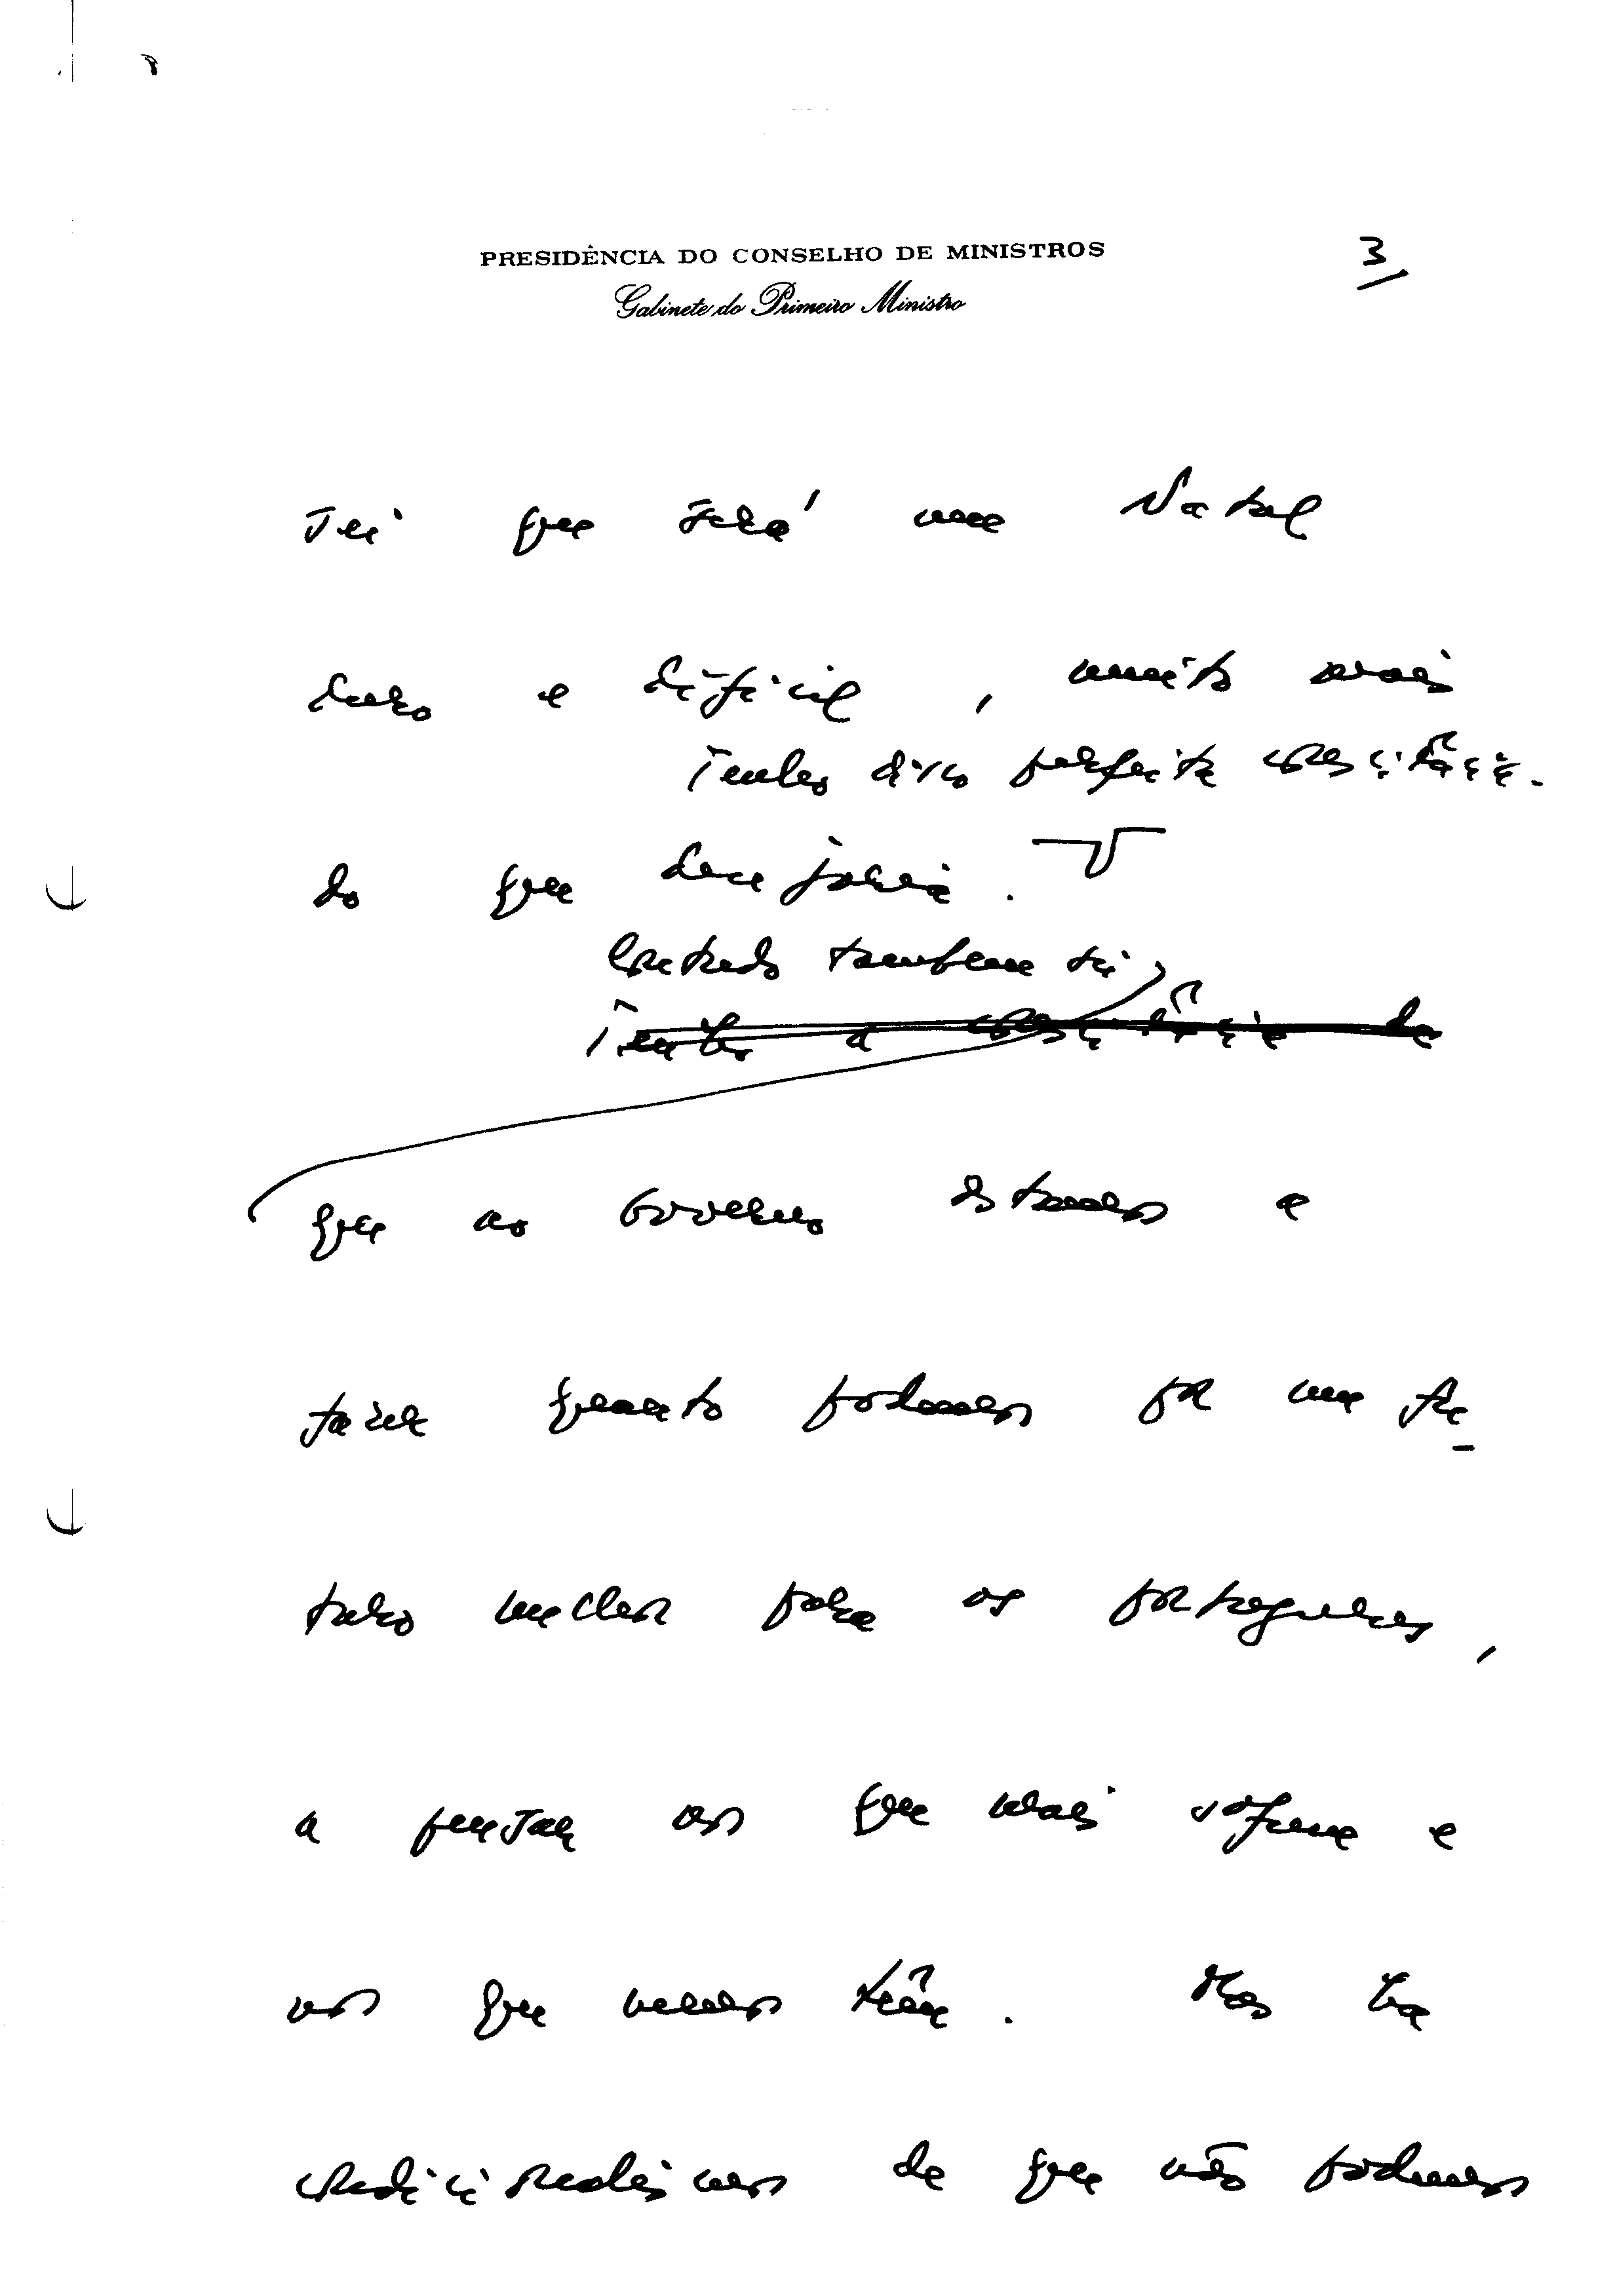 PRESIDÊNCIA DO CONSELHO DE MINISTROS
3
Gabinete do Primeiro Ministro
Sei que será um Natal
duro e difícil, muito mais
Tenho disso perfeita consciência.
do que desejaria.
Contudo também sei
Tenho a consciência de
que no Governo estamos a
fazer quanto podemos por um fu-
turo melhor para os portugueses,
a pensar nos que mais sofrem e
nos que menos têm. Mas há
condicionalismos de que não podemos